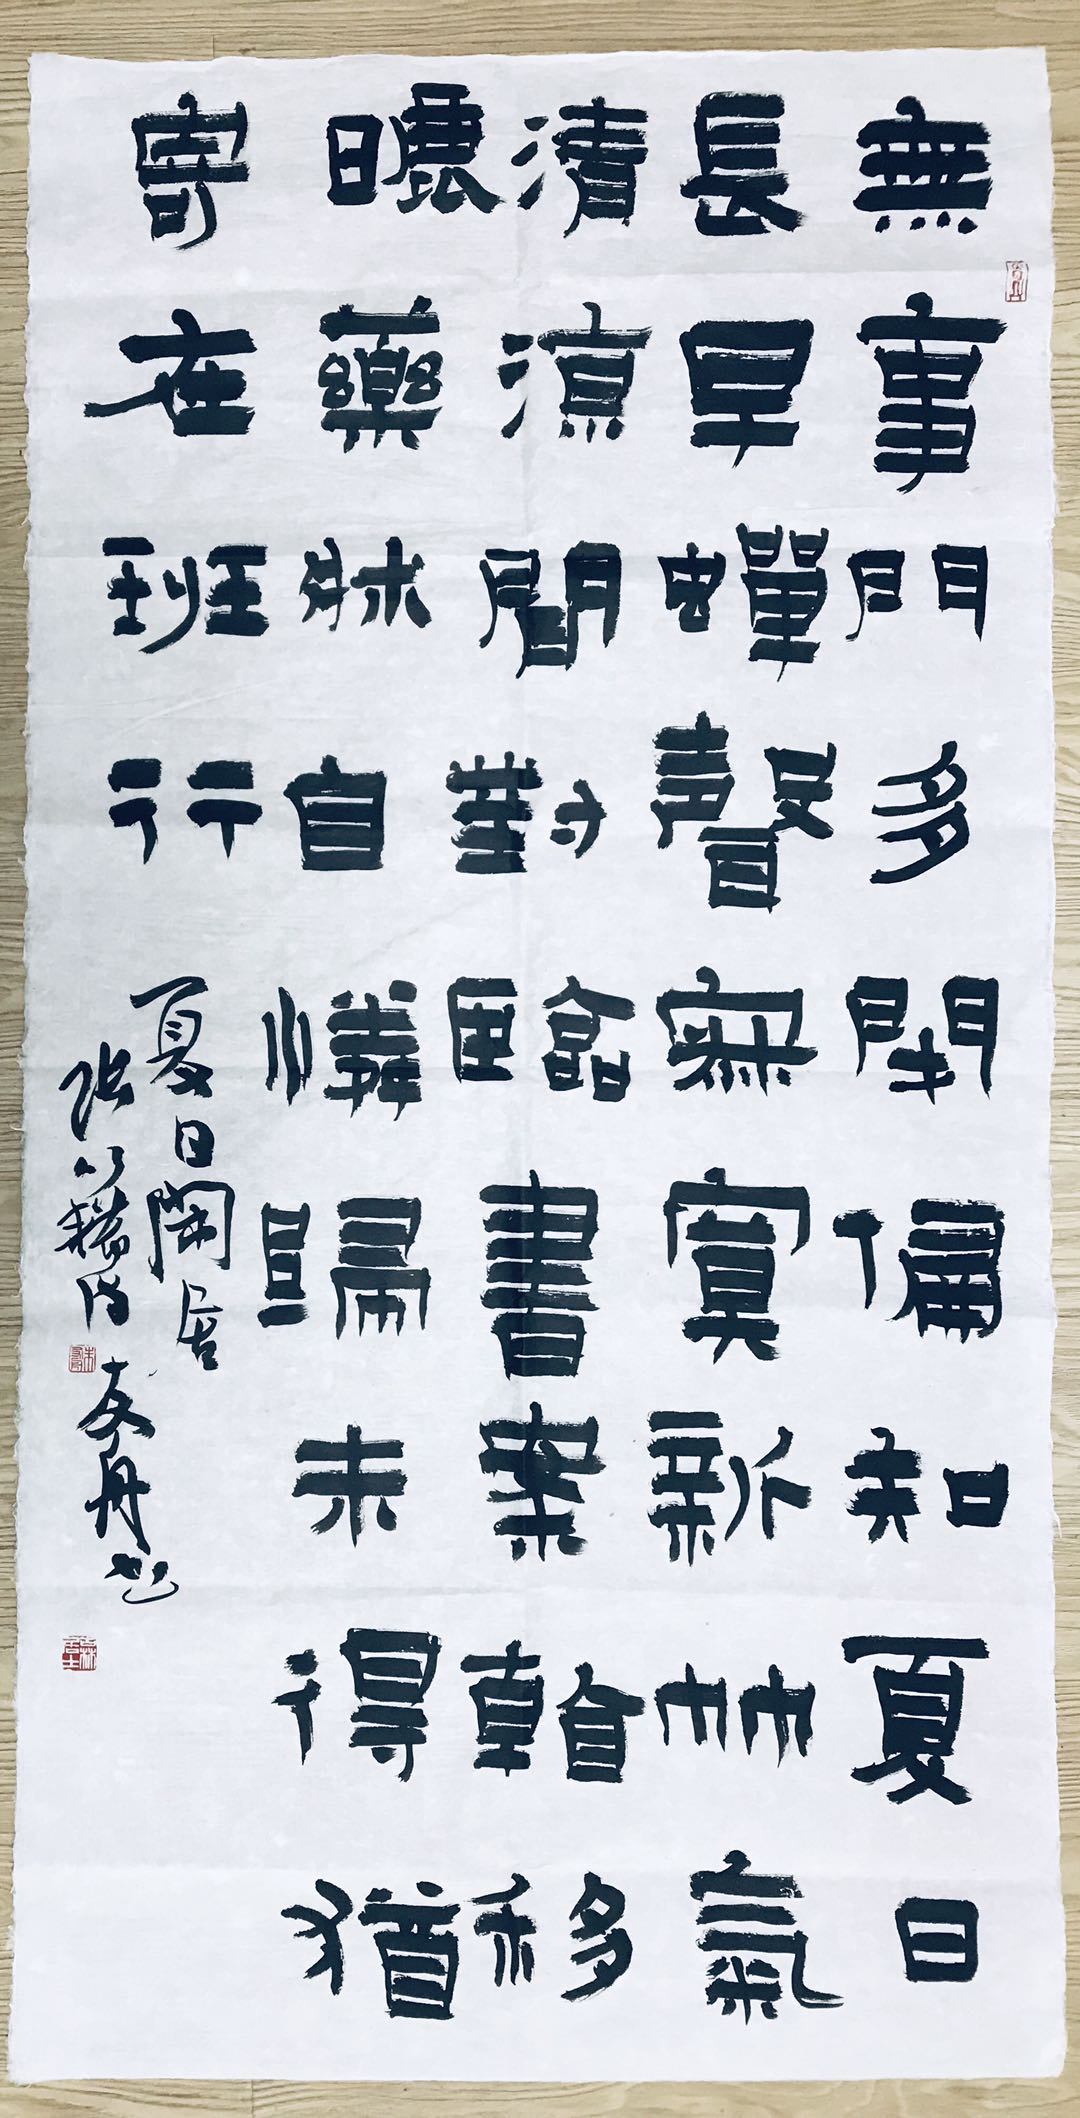 無事門多閉偏知夏日
長早蟬聲寂寞新竹氣
清涼閒對臨書案看移
曬藥牀自憐歸未得猶
寄在班行
夏日閑居
張籍詩 友丹书